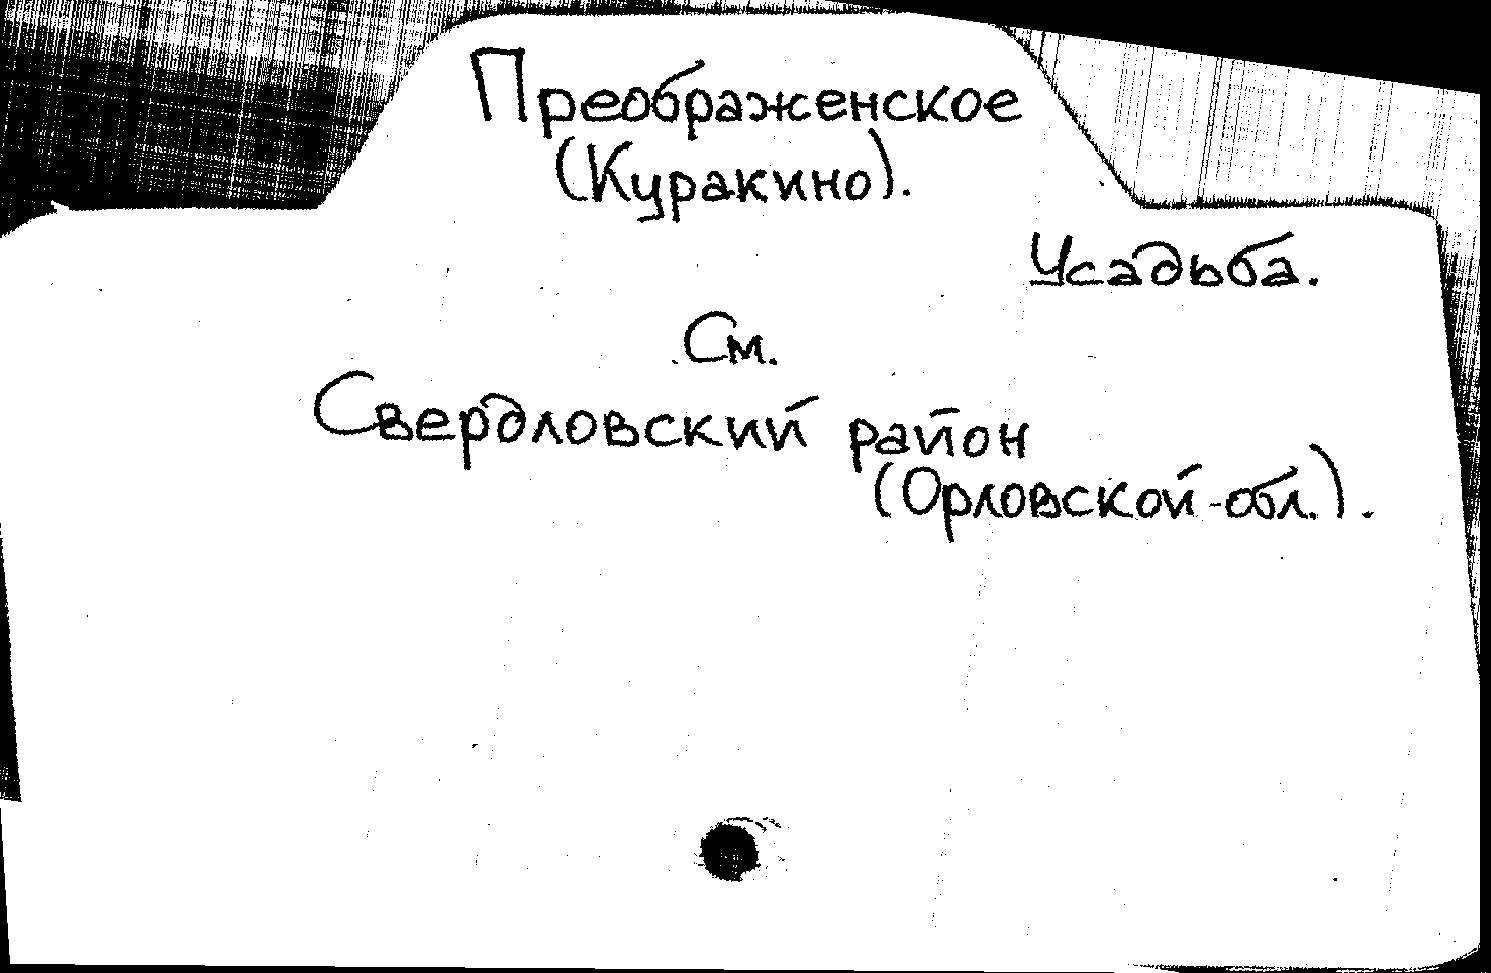 Преображенское
(Куракино).
Усадьба.
См.
Свердловский район
(Орловской обл.).